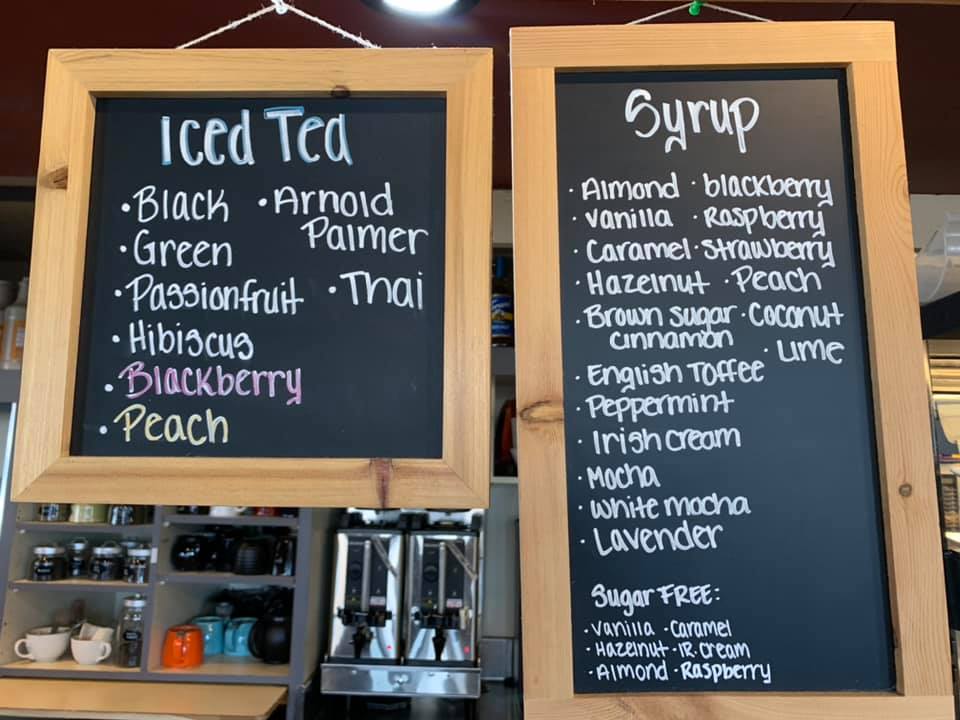 Iced Tea
• Black • Arnold
Palmer
• Green
• Passionfruit • Thai
• Hibiscus
• Blackberry
• Peach
Syrup
· Almond · blackberry
· vanilla · Raspberry
· Caramel · strawberry
· Hazelnut · Peach
· Brown sugar · Coconut
cinnamon · Lime
· English Toffee
· Peppermint
· Irish cream
· Mocha
· White mocha
· Lavender
Sugar FREE:
· Vanilla · Caramel
· Hazelnut · IR. Cream
· Almond · Raspberry